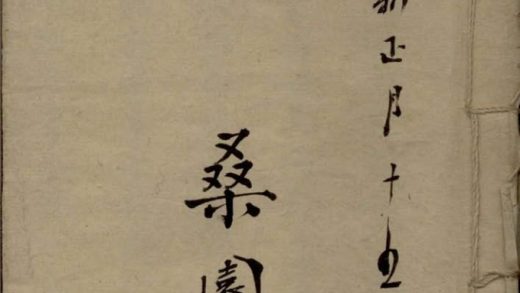 正月十五
桑園